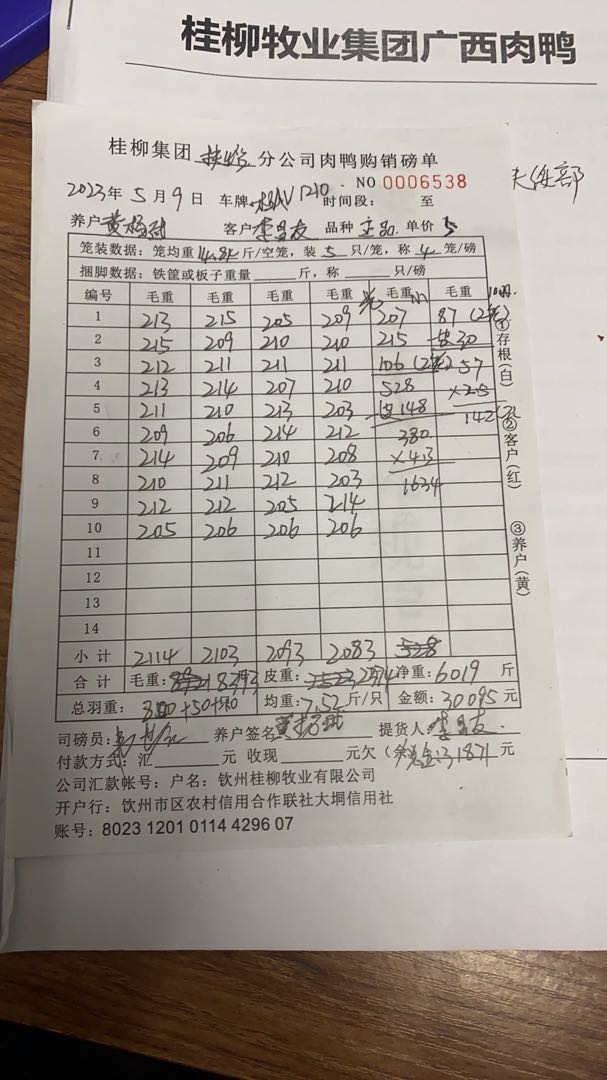 桂柳牧业集团广西肉鸭
桂柳集团 分公司肉鸭购销磅单
NO 0006538
2023年5月9日 车牌 1210 时间段: 至
养户 黄 客户 李 友 品种 单价 5
笼装数据: 笼均重 14.84 斤/空笼, 装 5 只/笼, 称 4 笼/磅
捆脚数据: 铁筐或板子重量 斤, 称 只/磅
编号 毛重 毛重 毛重 毛重 毛重 毛重
1 213 215 205 209 207 87
2 215 209 210 210 215 皮30
3 212 211 211 211 106 57
4 213 214 207 210 528
5 211 210 213 203 皮148 142
6 209 206 214 212 380
7 214 209 210 208 ×4.3
8 210 211 212 203 1634
9 212 212 205 214
10 205 206 206 206
11
12
13
14
小计 2114 2103 2093 2083 528
合计 毛重: 8393 皮重: 2374 净重: 6019 斤
总羽重: 均重: 7.52 斤/只 金额: 30095 元
司磅员: 养户签名 提货人: 李 友
付款方式: 汇 元 收现 元欠 31871 元
公司汇款帐号: 户名: 钦州桂柳牧业有限公司
开户行: 钦州市区农村信用合作联社大垌信用社
账号: 8023 1201 0114 4296 07
①存根(白)
②客户(红)
③养户(黄)